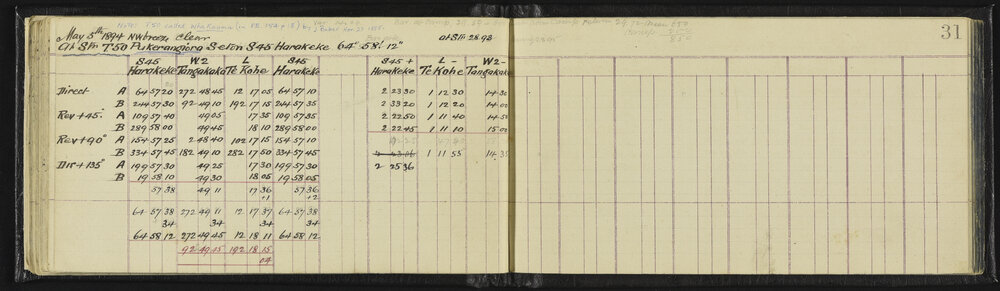 Note: T50 called Whakauma in FB 154 p
31
May 5th 1894 NW breeze Clear
At Stn T50 Pukerangiora Set on S45 Harakeke 64° 58' 12" at Stn 28.98
S45 W2 L S45 S45 + L - W2 -
Harakeke Tangakaka Te Kohe Harakeke Harakeke Te Kohe Tangakaka
Direct A 64 57 20 272 48 45 12 17 05 64 57 10 2 23 30 1 12 30 14 30
B 244 57 30 92 49 10 192 17 15 244 57 35 2 33 20 1 12 20 14 00
Rev + 45° A 109 57 40 49 05 17 35 109 57 35 2 22 50 1 11 40 14 50
B 289 58 00 49 45 18 10 289 58 00 2 22 45 1 11 10 15 00
Rev + 90° A 154 57 25 2 48 40 102 17 15 154 57 10
B 334 57 45 182 49 10 282 17 50 334 57 45 2 23 06 1 11 55 14 35
Dir + 135° A 199 57 30 49 25 17 30 199 57 30 2 25 36
B 19 58 10 49 30 18 05 19 58 05
57 38 49 11 17 36 57 36
+1 +2
64 57 38 272 49 11 12 17 37 64 57 38
34 34 34 34
64 58 12 272 49 45 12 18 11 64 58 12
92 49 15 192 18 15
04